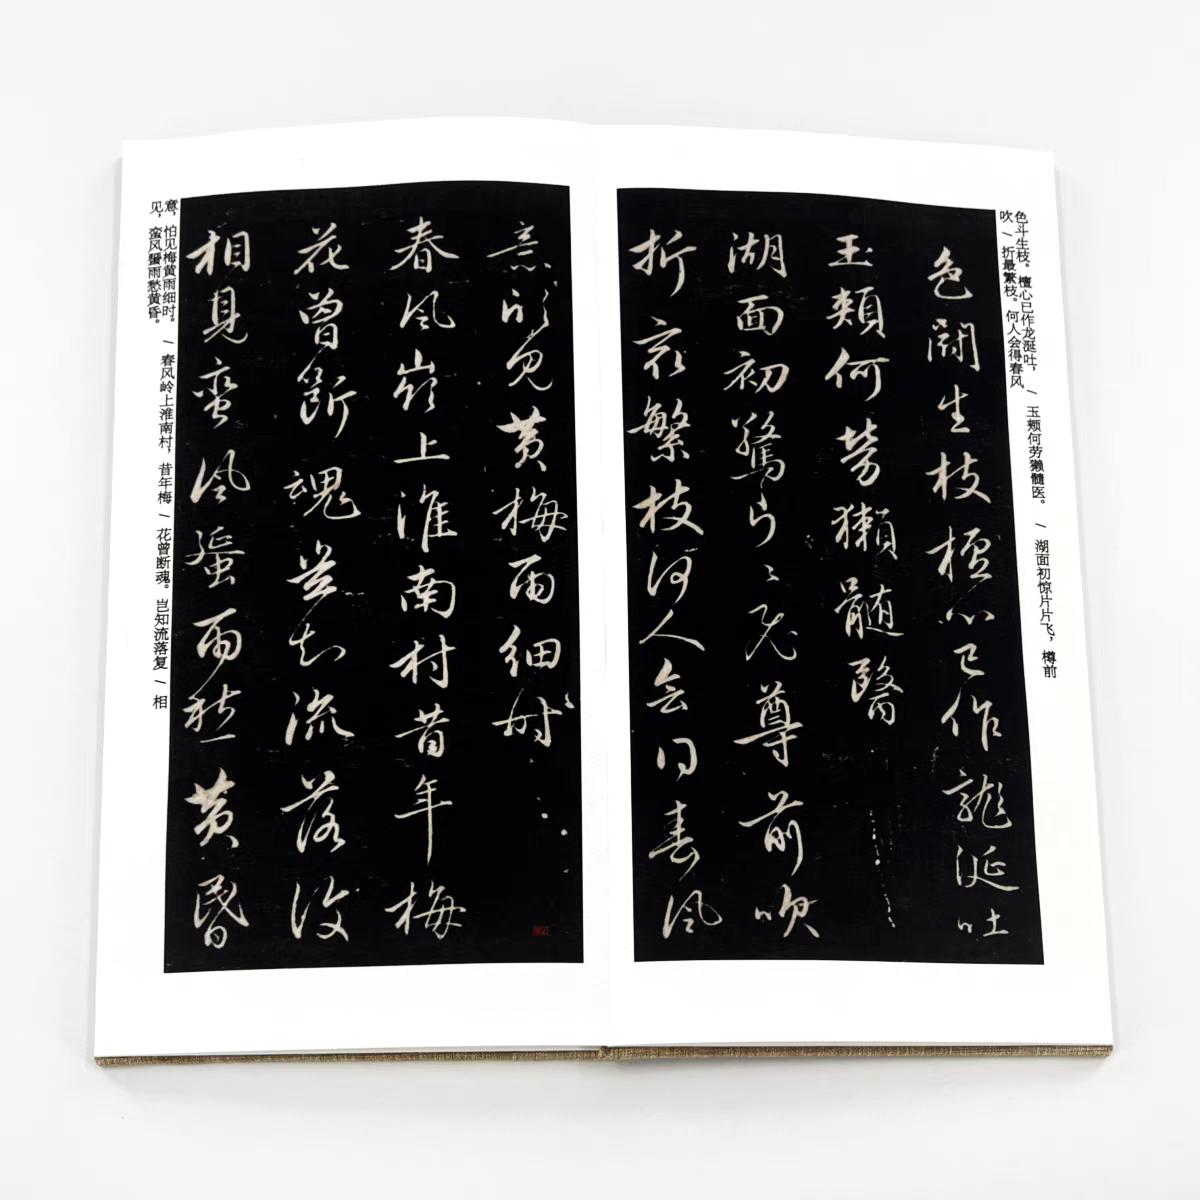 色斗生枝。檀心已作龙涎吐， / 玉颊何劳獭髓医。 / 湖面初惊片片飞，樽前
吹 / 折最繁枝。何人会得春风
色鬪生枝檀心已作龍涎吐
玉頰何勞獺髓醫
湖面初驚片〻飛尊前吹
折最繁枝何人會得春風
意怕見黄梅雨細時
春風嶺上淮南村昔年梅
花曾斷魂豈知流落復
相見蠻風蜑雨愁黄昏
意，怕见梅黄雨细时。 / 春风岭上淮南村，昔年梅 / 花曾断魂。岂知流落复 / 相
见，蛮风蜑雨愁黄昏。